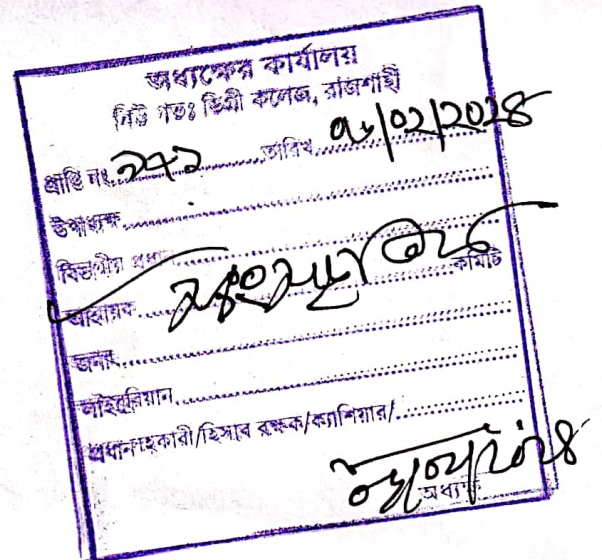 অধ্যক্ষের কার্যালয়
নিউ গভঃ ডিগ্রী কলেজ, রাজশাহী
প্রাপ্তি নং.............তারিখ.............
উপাধ্যক্ষ.............
বিভাগীয় প্রধান.............
আহবায়ক.............কমিটি
জনাব.............
লাইব্রেরিয়ান.............
প্রধান সহকারী/হিসাব রক্ষক/ক্যাশিয়ার/.............
অধ্যক্ষ